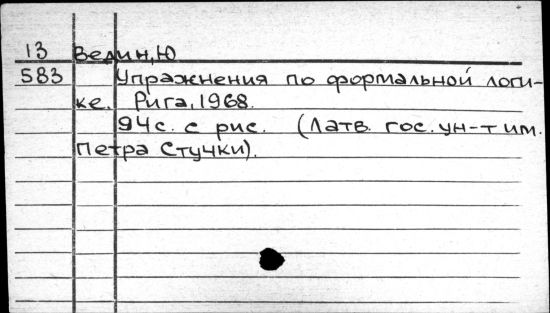 13 Ведин, Ю
583 Упражнения по формальной логи-
ке. Рига, 1968.
94с. с рис. (Латв. гос. ун-т им.
Петра Стучки).